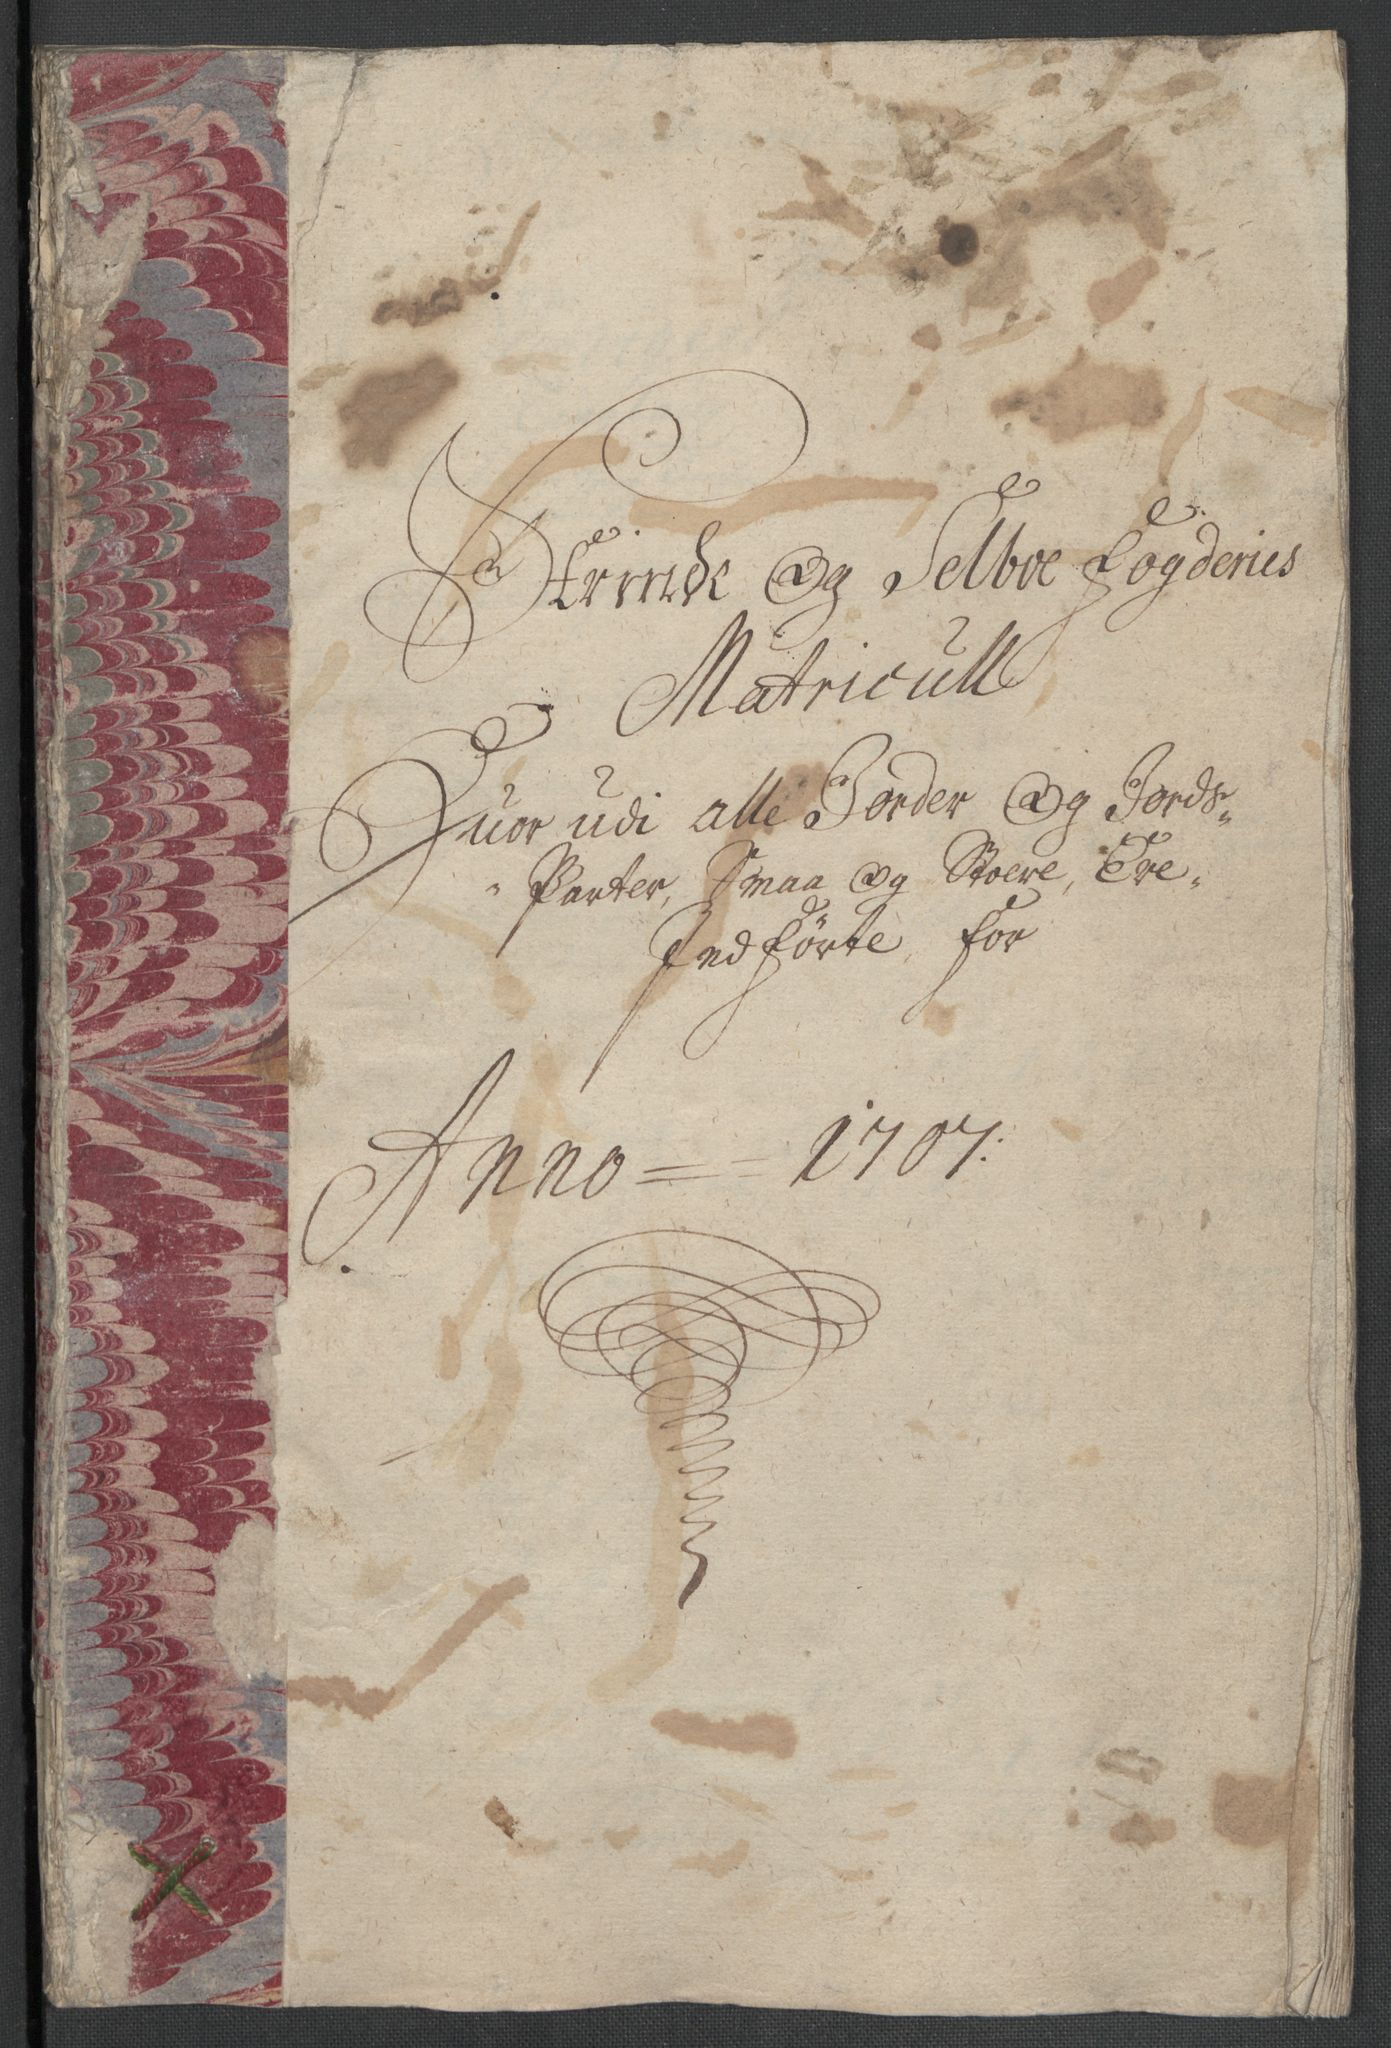 Strinde og Selboe Fogderies
Matricull
Huor udi alle Jorder og Jords-
Parter, Smaa og Stoere, Ere
Indførte, for
Anno == 1707: